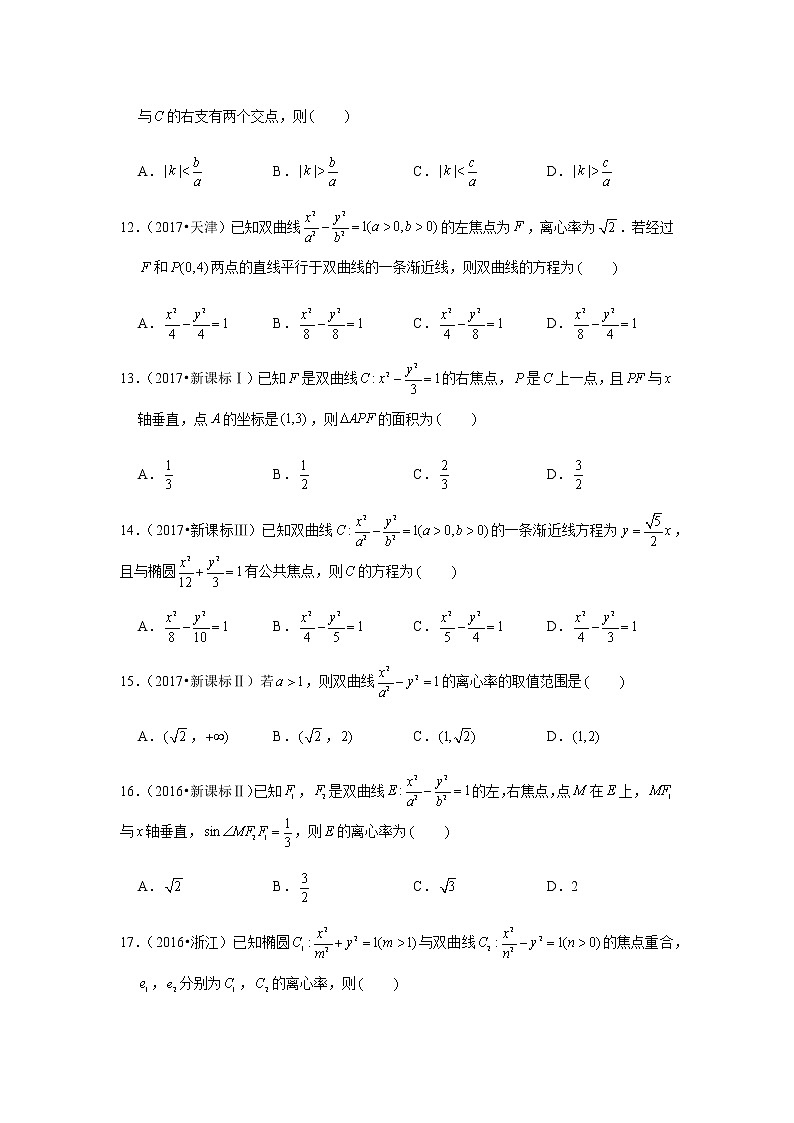 与C的右支有两个交点，则(　　)
A．|k|<b/a　B．|k|>b/a　C．|k|<c/a　D．|k|>c/a
12．（2017•天津）已知双曲线x²/a²－y²/b²＝1(a＞0,b＞0)的左焦点为F，离心率为√2．若经过
F和P(0,4)两点的直线平行于双曲线的一条渐近线，则双曲线的方程为(　　)
A．x²/4－y²/4＝1　B．x²/8－y²/8＝1　C．x²/4－y²/8＝1　D．x²/8－y²/4＝1
13．（2017•新课标Ⅰ）已知F是双曲线C:x²－y²/3＝1的右焦点，P是C上一点，且PF与x
轴垂直，点A的坐标是(1,3)，则ΔAPF的面积为(　　)
A．1/3　B．1/2　C．2/3　D．3/2
14．（2017•新课标Ⅲ）已知双曲线C:x²/a²－y²/b²＝1(a＞0,b＞0)的一条渐近线方程为y＝√5/2 x，
且与椭圆x²/12＋y²/3＝1有公共焦点，则C的方程为(　　)
A．x²/8－y²/10＝1　B．x²/4－y²/5＝1　C．x²/5－y²/4＝1　D．x²/4－y²/3＝1
15．（2017•新课标Ⅱ）若a＞1，则双曲线x²/a²－y²＝1的离心率的取值范围是(　　)
A．(√2，+∞)　B．(√2，2)　C．(1,√2)　D．(1,2)
16．（2016•新课标Ⅱ）已知F₁，F₂是双曲线E:x²/a²－y²/b²＝1的左,右焦点,点M在E上，MF₁
与x轴垂直，sin∠MF₂F₁＝1/3，则E的离心率为(　　)
A．√2　B．3/2　C．√3　D．2
17．（2016•浙江）已知椭圆C₁:x²/m²＋y²＝1(m＞1)与双曲线C₂:x²/n²－y²＝1(n＞0)的焦点重合，
e₁，e₂分别为C₁，C₂的离心率，则(　　)